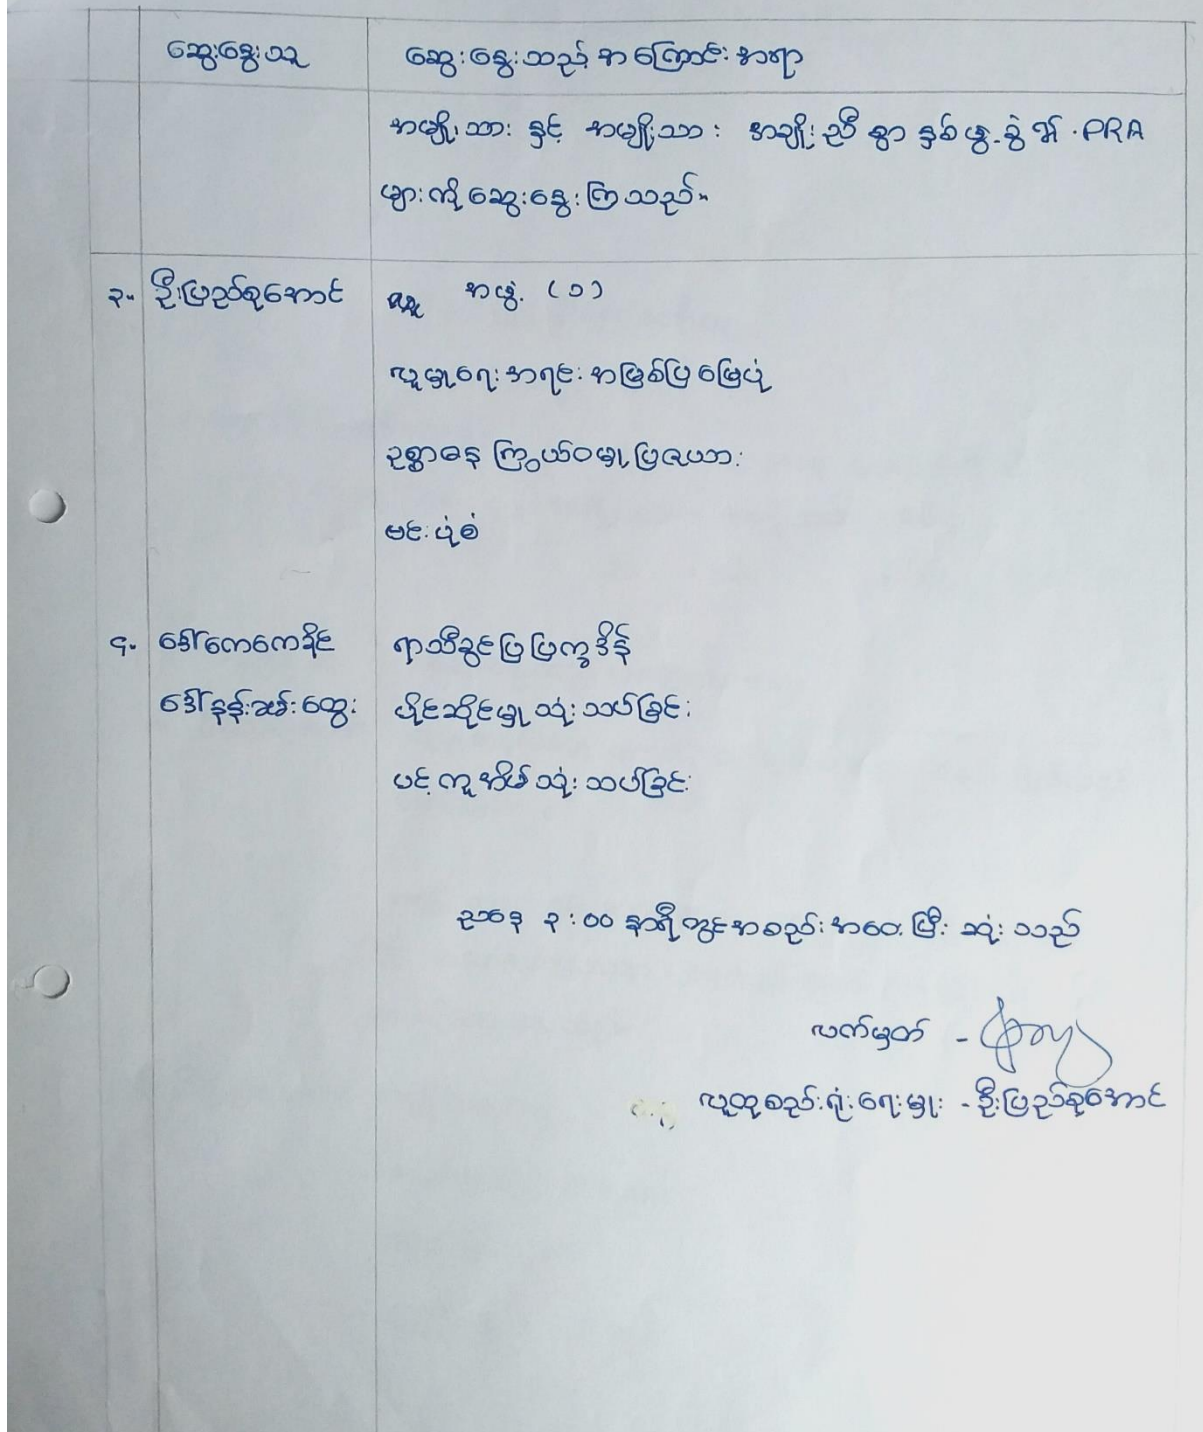 ဆွေးနွေးသူ ဆွေးနွေးသည့် အကြောင်းအရာ
အမျိုးသား နှင့် အမျိုးသား အချိုးညီစွာ နှစ်ဖွဲ့ခွဲ၍ PRA
များကို ဆွေးနွေးကြသည်။
၃။ ဦးပြည်စုအောင် အဖွဲ့ (၁)
လူမှုရေးအရင်းအမြစ်ပြမြေပုံ
ဥစ္စာဓနကြွယ်ဝမှုပြဇယား
မင်းပုံစံ
၄။ ဒေါ်ကေကေခိုင် ရာသီခွင်ပြပြက္ခဒိန်
ဒေါ်နန်းခမ်းထွေး ပိုင်ဆိုင်မှုသုံးသပ်ခြင်း
ပင့်ကူအိမ်သုံးသပ်ခြင်း
ညနေ ၃:၀၀ နာရီတွင်အစည်းအဝေးပြီးဆုံးသည်
လက်မှတ် -
လူထုစည်းရုံးရေးမှုး - ဦးပြည်စုအောင်